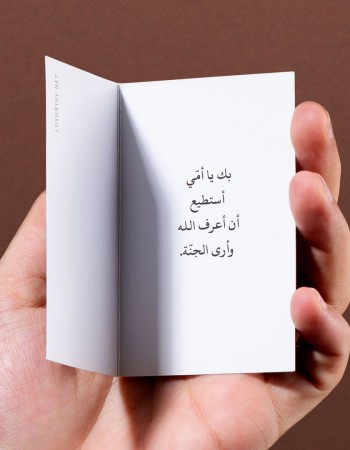 بك يا أمّي
أستطيع
أن أعرف الله
وأرى الجنّة.
LUXURYBY.NET